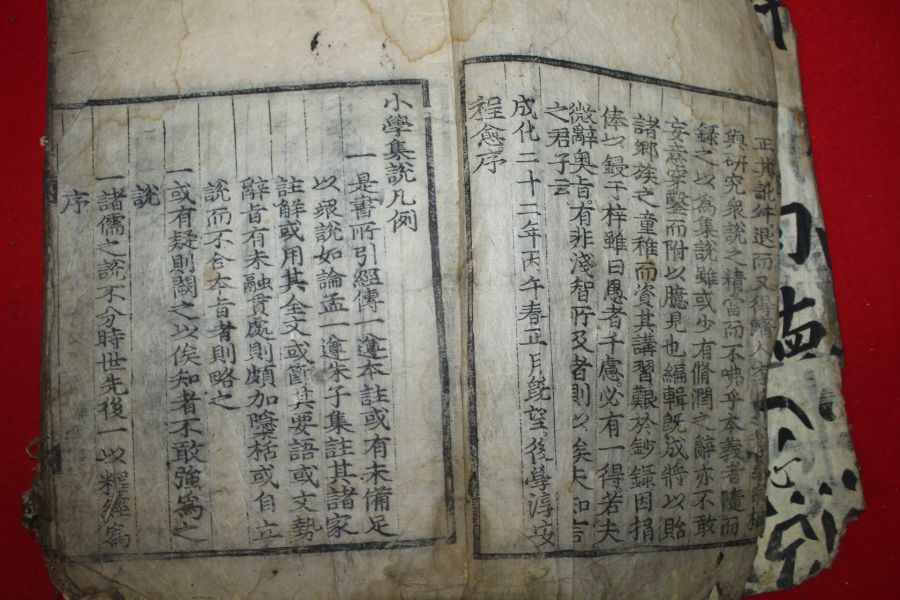 正其訛舛退而又得
與研究衆說之積當而不咈乎本義者隨而
錄之以為集說雖或少有脩潤之辭亦不敢
妄意穿鑿而附以臆見也編輯旣成將以貽
諸鄉族之童稚而資其講習艱於鈔錄因捐
俸以鋟于梓雖曰愚者千慮必有一得若夫
微辭奧旨有非淺智所及者則以俟夫知言
之君子云
成化二十二年丙午春正月旣望後學淳安
程愈序
小學集說凡例
一是書所引經傳一遵本註或有未備足
以衆說如論孟一遵朱子集註其諸家
註解或用其全文或節其要語或文勢
辭旨有未融貫處則頗加檃栝或自立
說而不合本旨者則略之
一或有疑則闕之以俟知者不敢強為之
說
一諸儒之說不分時世先後一以釋經為
序